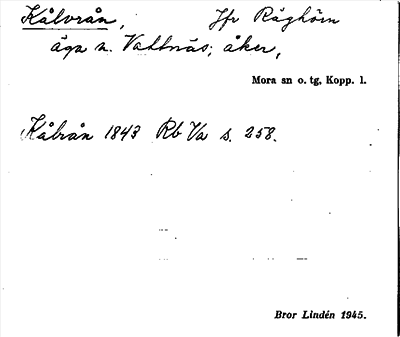 Kålvrån, Jfr Råghörn
äga n. Vattnäs; åker,
Mora sn o. tg, Kopp. l.
Kålrån 1843 Rb Va s. 258.
Bror Lindén 1945.